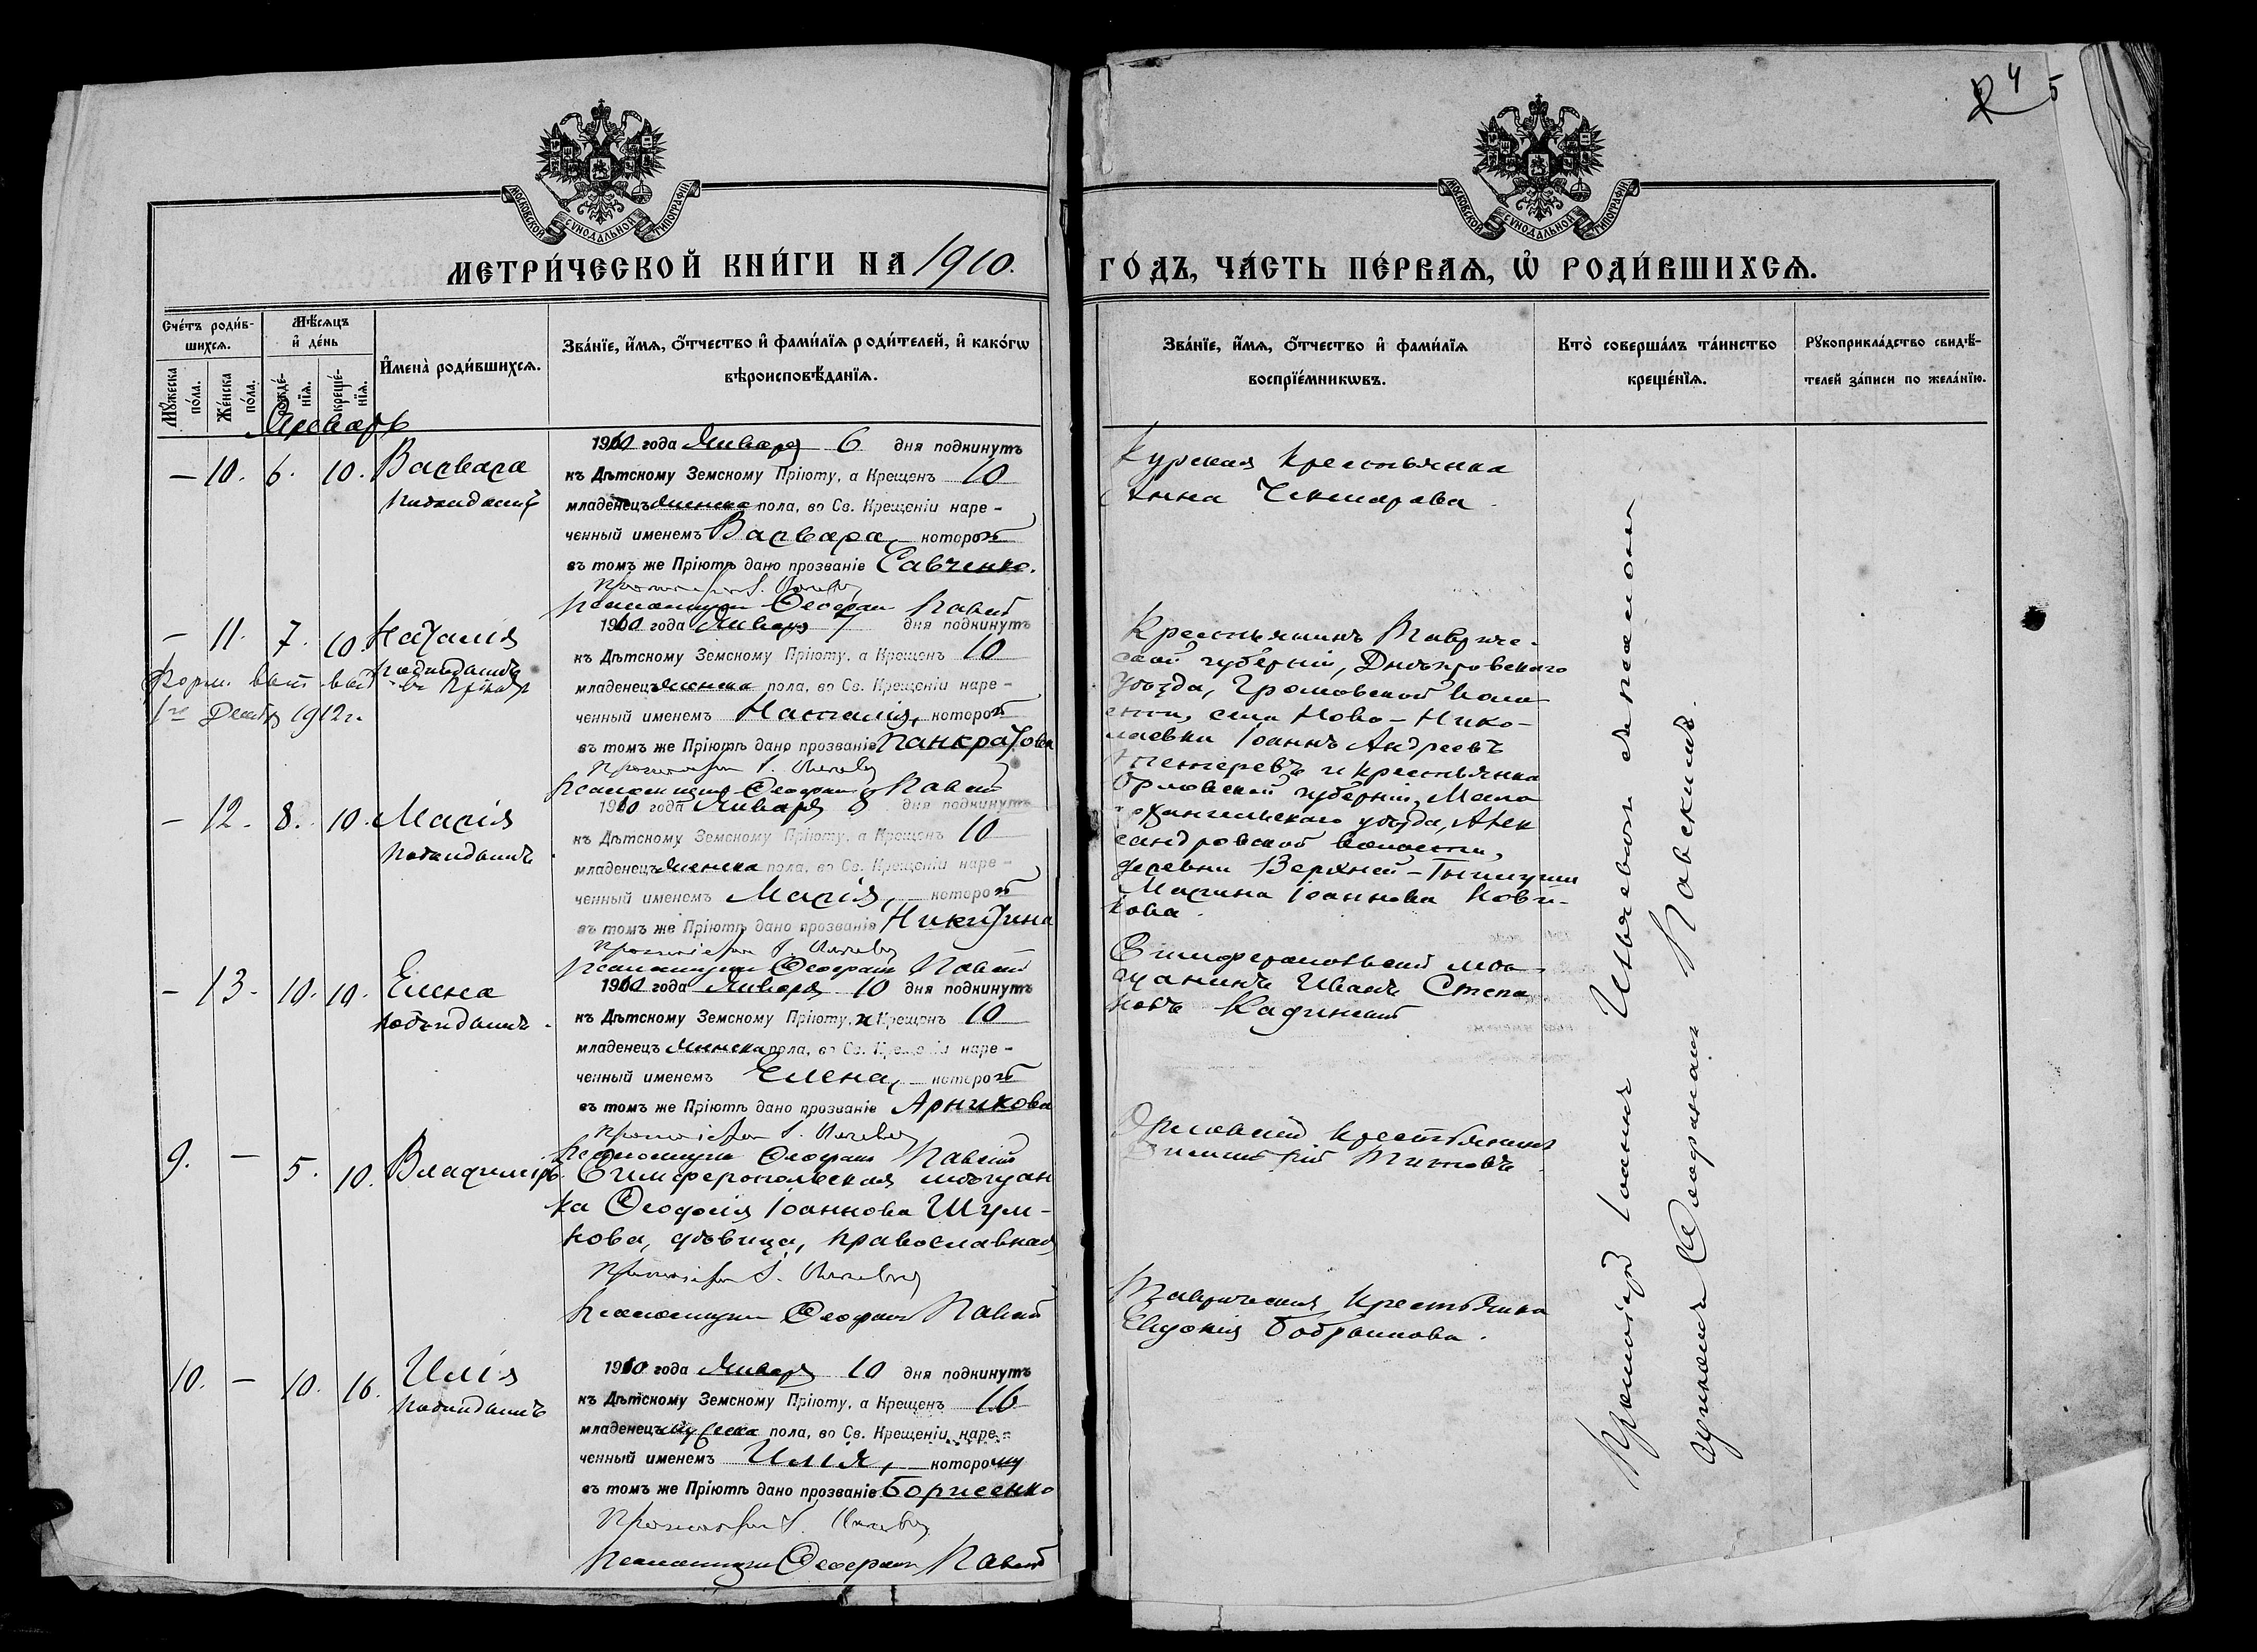 4
5
МОСКОВСКОЙ СѴНОДАЛЬНОЙ ТИПОГРАФІИ
МОСКОВСКОЙ СѴНОДАЛЬНОЙ ТИПОГРАФІИ
МЕТРИ́ЧЕСКОЙ КНИ́ГИ НА 1910.
ГО́ДЪ, ЧА́СТЬ ПЕ́РВАѦ, Ѡ҆ РОДИ́ВШИХСѦ.
Сче́тъ роди́в-
шихсѧ.
Мꙋ́жеска
по́ла.
Же́нска
по́ла.
Мѣ́сѧцъ
и҆ де́нь
рожде́-
нїѧ.
креще́-
нїѧ.
И҆мена̀ роди́вшихсѧ.
Зва́нїе, и҆́мѧ, ѻ҆́тчество и҆ фами́лїѧ роди́телей, и҆ како́гѡ
вѣроисповѣ́данїѧ.
Зва́нїе, и҆́мѧ, ѻ҆́тчество и҆ фами́лїѧ
воспрїе́мникѡвъ.
Кто̀ соверша́лъ та́инство
креще́нїѧ.
Рꙋкоприкла́дство свидѣ́-
телей за́писи по жела́нїю.
Январь
— 10. 6. 10. Варвара
подкидышъ
1910 года Января 6 дня подкинутъ
къ Дѣтскому Земскому Пріюту, а Крещенъ 10
младенецъ женска пола, во Св. Крещеніи наре-
ченный именемъ Варвара, которой
въ томъ же Пріютѣ дано прозваніе Савченко.
Протоіерей І.
Псаломщикъ Ѳеофанъ Павскій
Курская крестьянка
Анна
— 11. 7. 10. Наталія
подкидышъ
1912 г.
1910 года Января 7 дня подкинутъ
къ Дѣтскому Земскому Пріюту, а Крещенъ 10
младенецъ женска пола, во Св. Крещеніи наре-
ченный именемъ Наталія, которой
въ томъ же Пріютѣ дано прозваніе Панкратова
Протоіерей І.
Псаломщикъ Ѳеофанъ Павскій
Крестьянинъ Тавриче-
ской губерніи, Днѣпровскаго
уѣзда, Громовской воло-
сти, села Ново-Нико-
лаевки Іоаннъ Андреевъ
и крестьянка
Орловской губерніи, Мало
архангельскаго уѣзда, Алек
сандровской волости,
деревни Верхней-
Марина Іоаннова Нови-
кова.
— 12. 8. 10. Марія
подкидышъ.
1910 года Января 8 дня подкинутъ
къ Дѣтскому Земскому Пріюту, а Крещенъ 10
младенецъ женска пола, во Св. Крещеніи наре-
ченный именемъ Марія, которой
въ томъ же Пріютѣ дано прозваніе Никитина
Протоіерей І.
Псаломщикъ Ѳеофанъ Павскій
Симферопольскій мѣ-
щанинъ Иванъ Степа
новъ
— 13. 10. 10. Елена
подкидышъ.
1910 года Января 10 дня подкинутъ
къ Дѣтскому Земскому Пріюту, и Крещенъ 10
младенецъ женска пола, во Св. Крещеніи наре-
ченный именемъ Елена, которой
въ томъ же Пріютѣ дано прозваніе Арникова
Протоіерей І.
Псаломщикъ Ѳеофанъ Павскій
Орловскій крестьянинъ
Димитрій Титовъ.
9. — 5. 10. Владиміръ.
Симферопольская мѣщан
ка Ѳеодосія Іоаннова Шум-
кова, дѣвица, православная
Протоіерей І.
Псаломщикъ Ѳеофанъ Павскій
Таврическая крестьянка
Евдокія
10. — 10. 16. Илія
подкидышъ
1910 года Января 10 дня подкинутъ
къ Дѣтскому Земскому Пріюту, а Крещенъ 16
младенецъ мужеска пола, во Св. Крещеніи наре-
ченный именемъ Илія, которому
въ томъ же Пріютѣ дано прозваніе Борисенко
Протоіерей І.
Псаломщикъ Ѳеофанъ Павскій
Протоіерей Іоаннъ съ псалом
щикомъ Ѳеофаномъ Павскимъ.